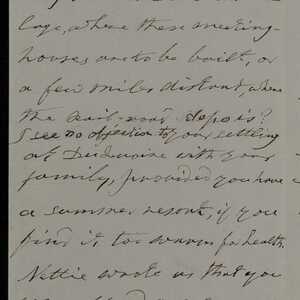 lage, where these meeting-
houses are to be built, or
a few miles distant, where
the rail-road depo is?
I see no objection to your settling
at with your
family, provided you have
a summer resort, if you
find it too warm for health.
Nettie wrote us that you